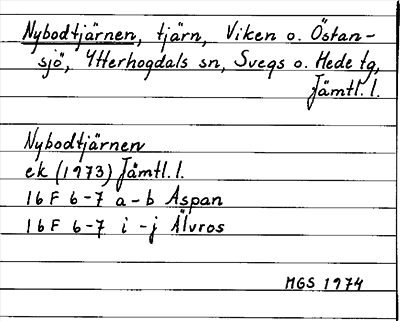 Nybodtjärnen, tjärn, Viken o. Östan-
sjö, Ytterhogdals sn, Svegs o. Hede tg,
Jämtl. l.
Nybodtjärnen
ek (1973) Jämtl. l.
16 F 6-7 a-b Aspan
16 F 6-7 i-j Älvros
MGS 1974